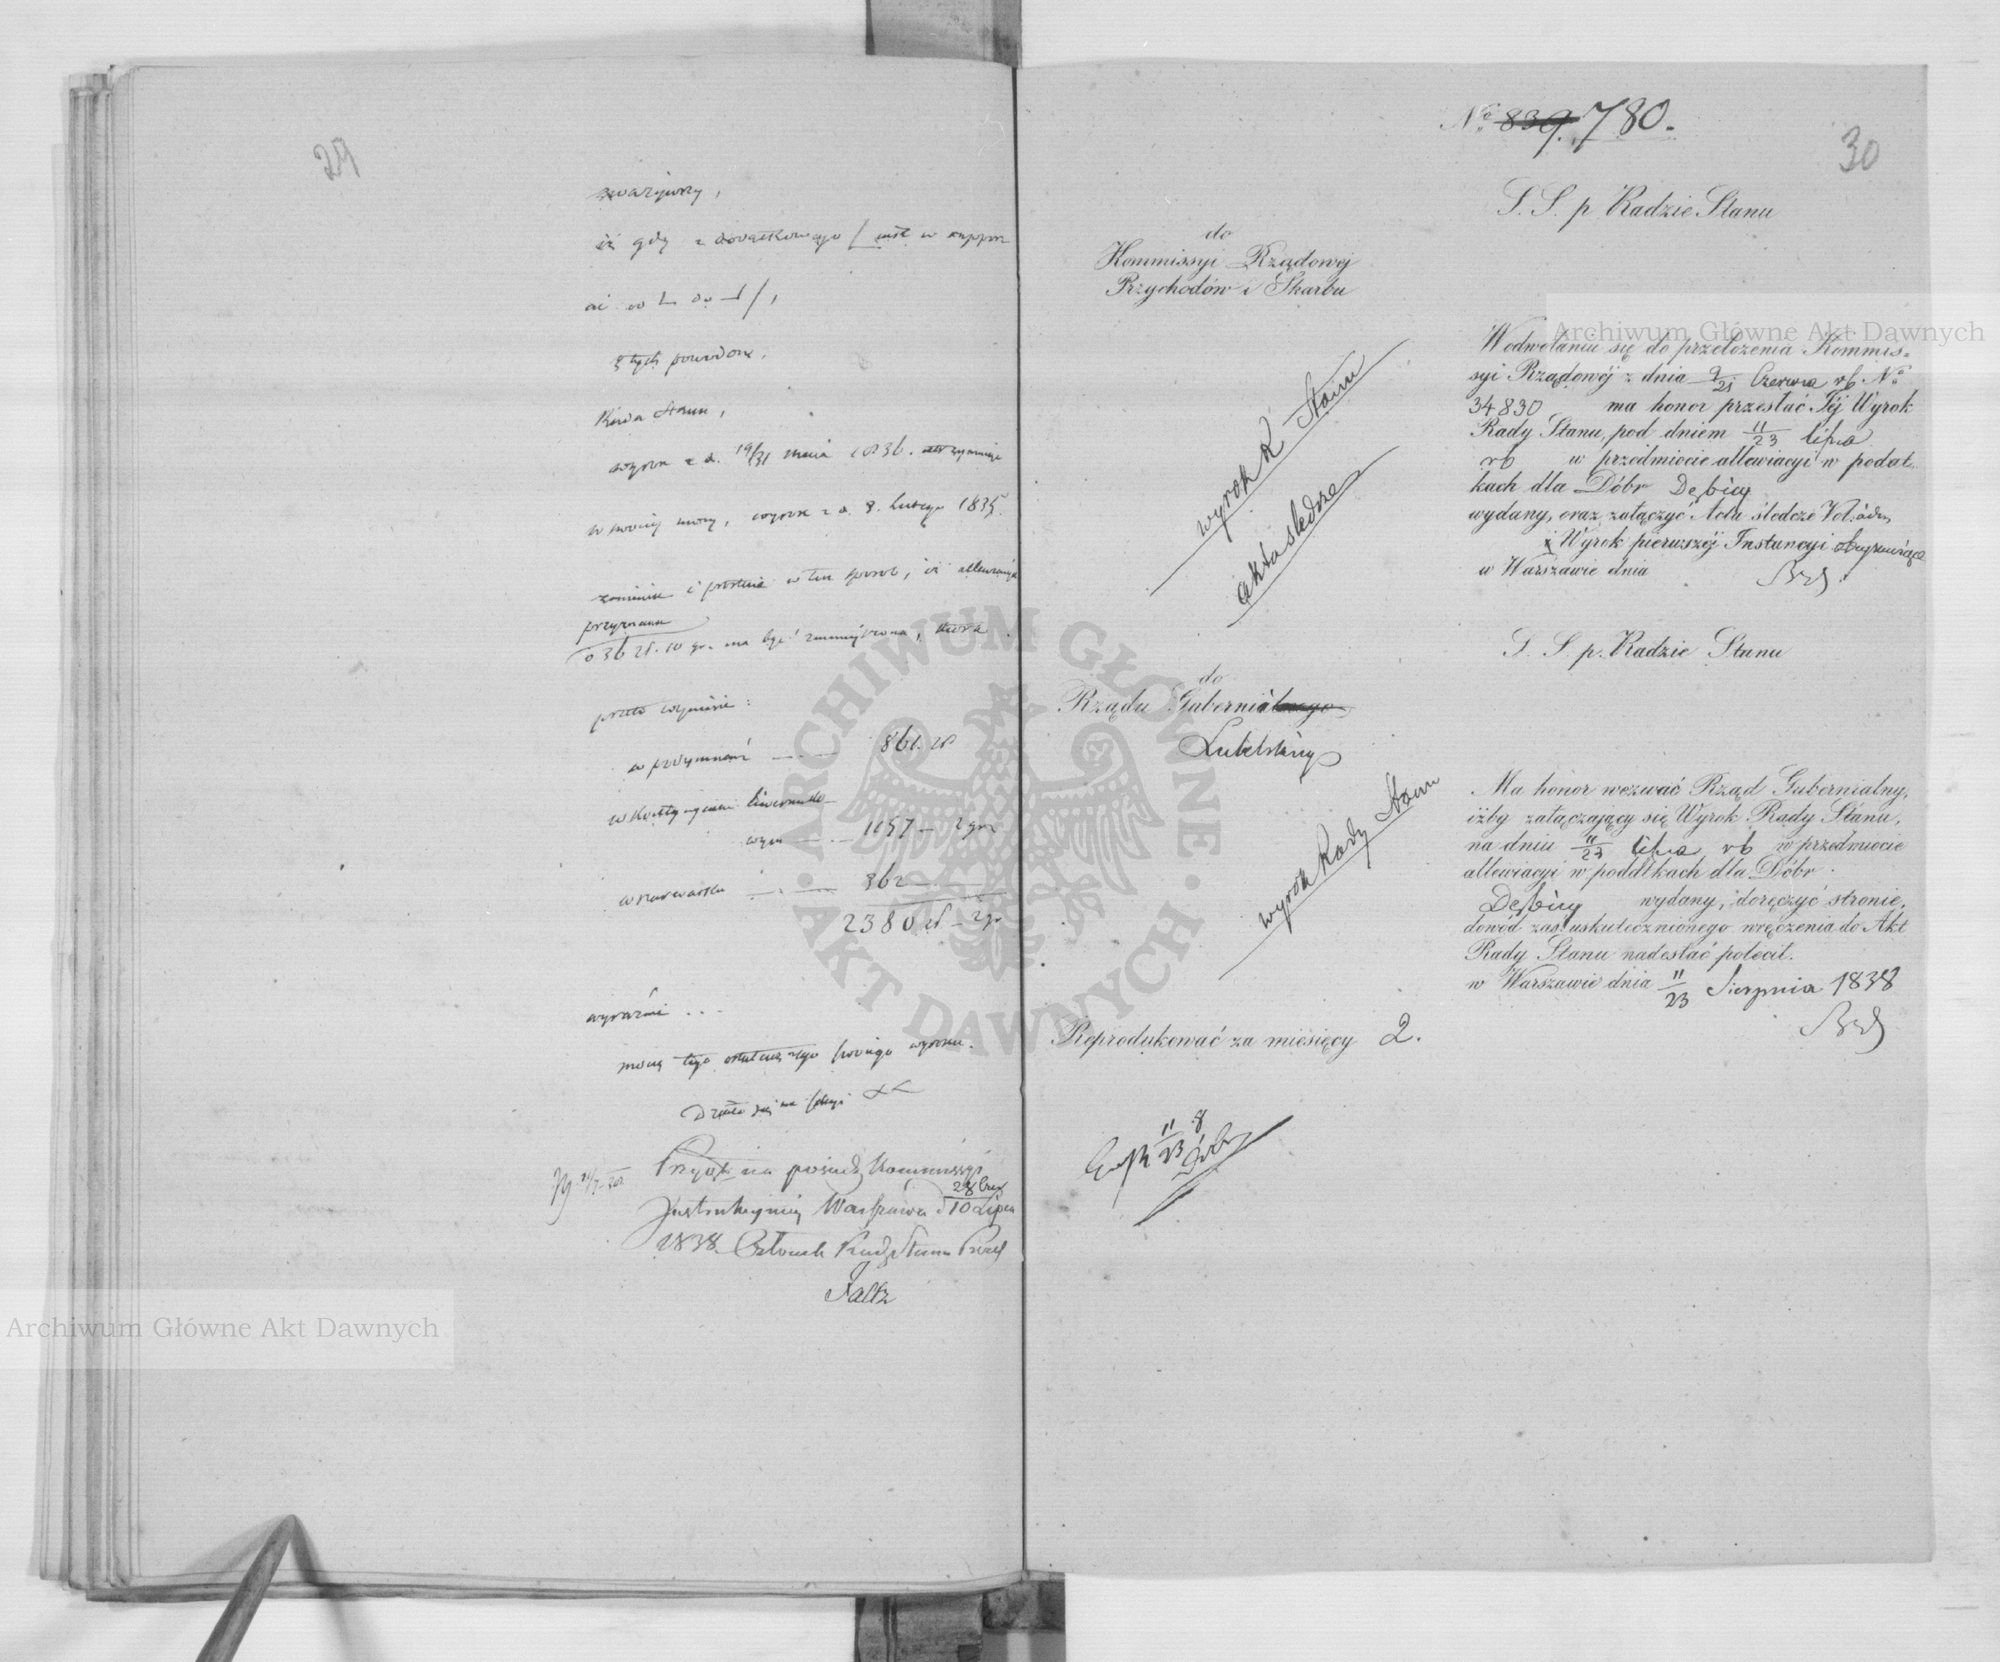 29
zważywszy,
iż gdy z dodatkowego / jest w rappor
ać od L do ⅃ /,
z tych powodów,
Rada Stanu,
wyrok z d. 19/31 maja 1836.
w swéj mocy, wyrok z d. 3. Lutego 1835.
zmienia i prostuie w ten sposób, iż allewiacya
przyznana
o 36 zł. 10 gr. ma być zmnieyszona, która
przeto wyniesie:
w podymném — 861. zł
w kontyngensie liwerunko-
wym — 1157 — 2 gr
w szarwarku — 362 —
2380 zł — 2 gr
wyraźnie ...
mocą tego ostatecznego swoiego wyroku.
Działo się na sessyi
Przyjęto na posiedz. Kommissyi
Instrukcyjnéj Warszawa d 28 Czer / 10 Lipca
1838. Członek Rady Stanu Prezd
Faltz
30
No. 839. 780.
S. S. p Radzie Stanu
do
Kommissyi Rządowéj
Przychodów i Skarbu
W odwołaniu się do przełożenia Kommis-
syi Rządowéj z dnia 9/21 Czerwca rb No.
34830 ma honor przesłać Téj Wyrok
Rady Stanu, pod dniem 11/23 lipca
rb w przedmiocie allewiacyi w podat-
kach dla Dóbr Dębicy
wydany, oraz załączyć Acta śledcze Vol:
i Wyrok pierwszéj Instancyi
w Warszawie dnia
wyrok R Stanu
akta śledcze
S. S. p. Radzie Stanu
do
Rządu Gubernialnego
Lubelskiego
Ma honor wezwać Rząd Gubernialny,
iżby załączający się Wyrok Rady Stanu,
na dniu 11/23 lipca rb w przedmiocie
allewiacyi w poddtkach dla Dóbr
Dębicy wydany, doręczyć stronie,
dowód zaś uskutecznionego wręczenia do Akt
Rady Stanu nadesłać polecił.
w Warszawie dnia 11/23 Sierpnia 1838
wyrok Rady Stanu
Reprodukować za miesięcy 2.
Archiwum Główne Akt Dawnych
Archiwum Główne Akt Dawnych
ARCHIWUM GŁÓWNE · AKT DAWNYCH ·